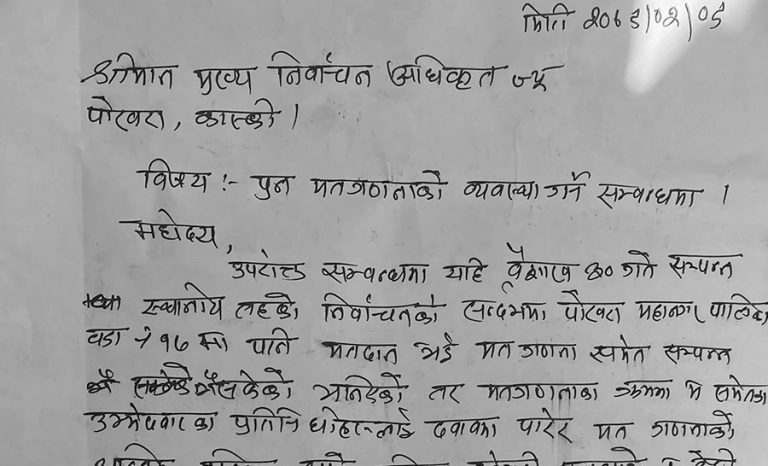 मिति २०७९/०२/०६
श्रीमान मुख्य निर्वाचन अधिकृत ज्यू
पोखरा, कास्की ।
विषय :- पुन मतगणनाको व्यवस्था गर्ने सम्बन्धमा ।
महोदय,
उपरोक्त सम्बन्धमा यहि वैशाख ३० गते सम्पन्न
स्थानीय तहको निर्वाचनको सन्दर्भमा पोखरा महानगरपालिका
वडा नं १७ मा पनि मतदान भई मत गणना समेत सम्पन्न
भनिएको तर मतगणनाका क्रममा म समेतका
उम्मेदवारका प्रतिनिधीहरुलाई दवावमा पारेर मत गणनाको